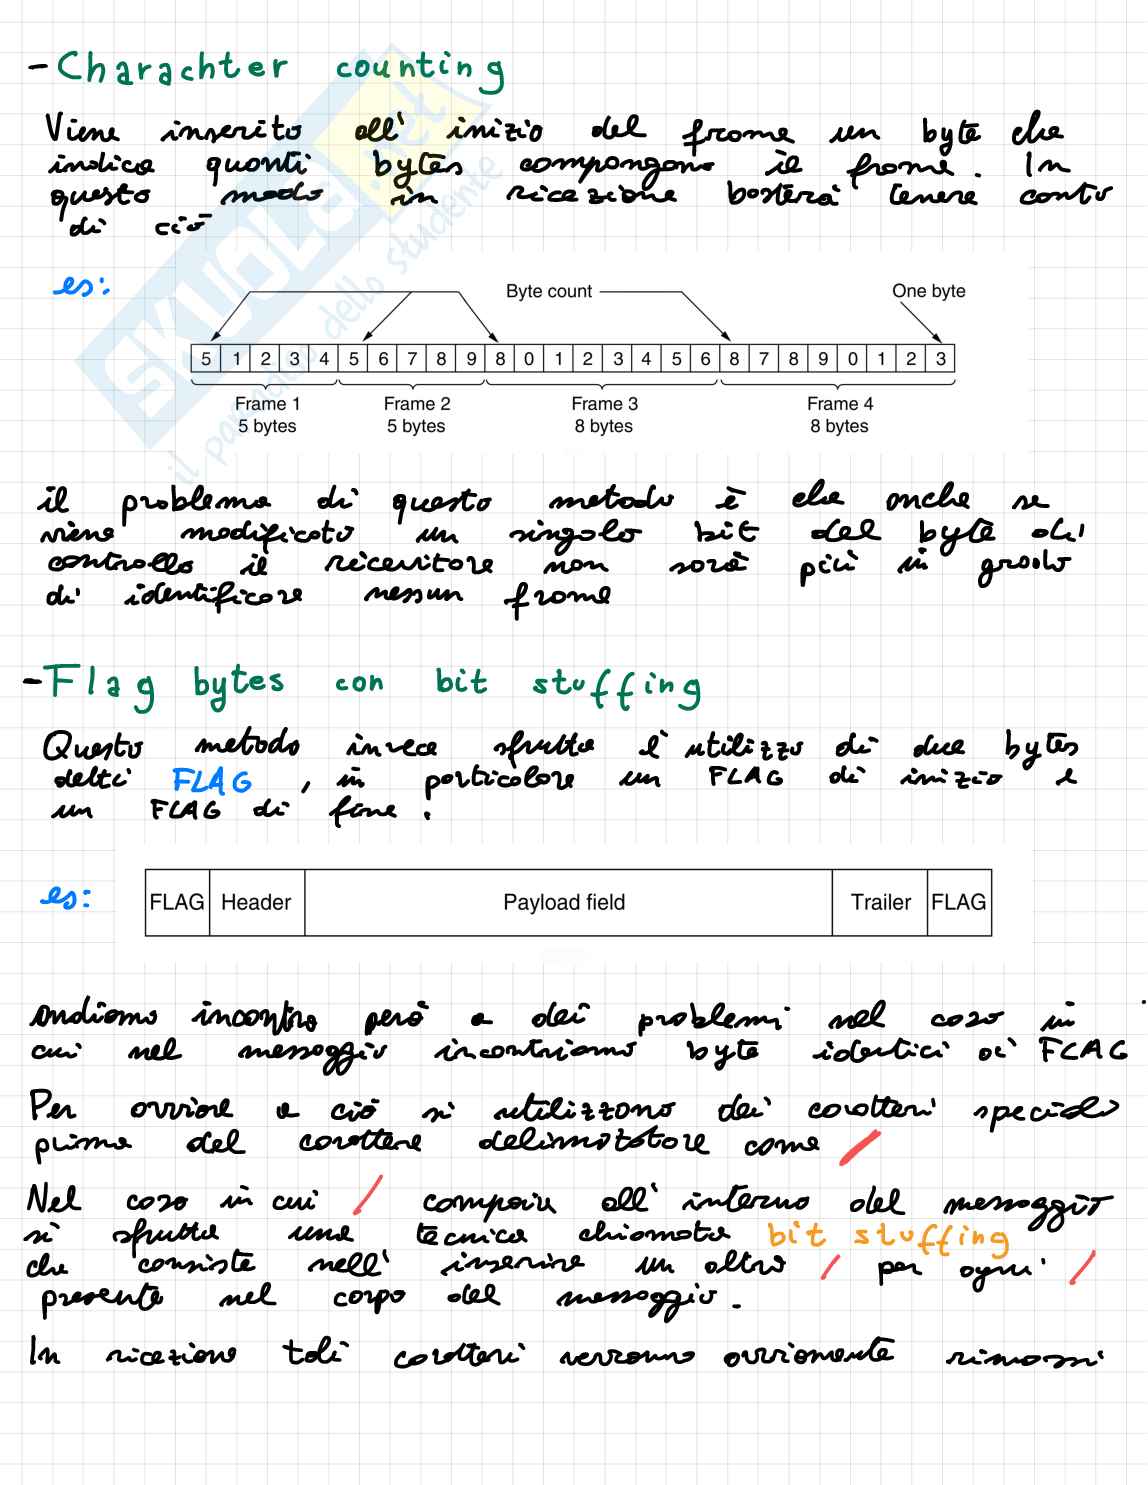 - Charachter counting
Viene inserito all' inizio del frame un byte che
indica quanti bytes compongono il frame. In
questo modo in ricezione basterà tenere conto
di ciò
es:
Byte count
One byte
5 1 2 3 4 5 6 7 8 9 8 0 1 2 3 4 5 6 8 7 8 9 0 1 2 3
Frame 1 Frame 2 Frame 3 Frame 4
5 bytes 5 bytes 8 bytes 8 bytes
il problema di questo metodo è che anche se
viene modificato un singolo bit del byte di
controllo il ricevitore non sarà più in grado
di identificare nessun frame
- Flag bytes con bit stuffing
Questo metodo invece sfrutta l'utilizzo di due bytes
detti FLAG , in particolare un FLAG di inizio e
un FLAG di fine .
es:
FLAG Header Payload field Trailer FLAG
andiamo incontro però a dei problemi nel caso in
cui nel messaggio incontriamo byte identici ai FLAG
Per ovviare a ciò si utilizzano dei caratteri speciali
prima del carattere delimitatore come /
Nel caso in cui / compaia all' interno del messaggio
si sfrutta una tecnica chiamata bit stuffing
che consiste nell' inserire un altro / per ogni /
presente nel corpo del messaggio .
In ricezione tali caratteri verranno ovviamente rimossi
SKUOLA.net
il paradiso dello studente